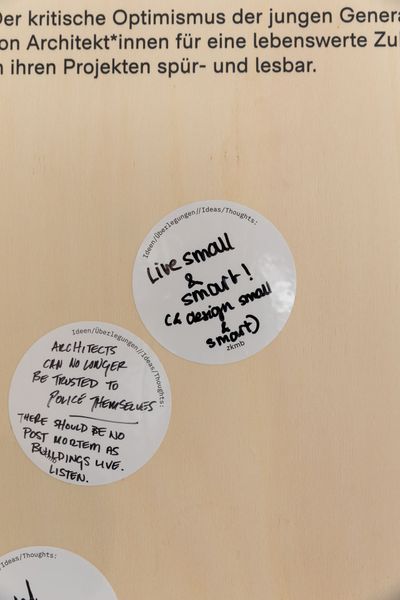 Der kritische Optimismus der jungen Genera
on Architekt*innen für eine lebenswerte Zu
n ihren Projekten spür- und lesbar.
Ideen/Überlegungen//Ideas/Thoughts:
Live small
&
smart!
(& design small
&
smart)
zkmb
Ideen/Überlegungen//Ideas/Thoughts:
ARCHITECTS
CAN NO LONGER
BE TRUSTED TO
POLICE THEMSELVES
THERE SHOULD BE NO
POST MORTEM AS
BUILDINGS LIVE.
LISTEN.
/Ideas/Thoughts: